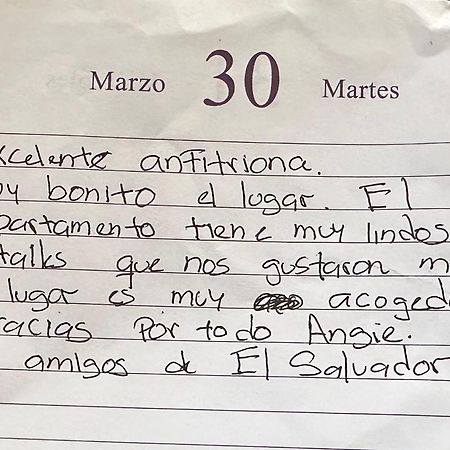 Marzo 30 Martes
xcelente anfitriona.
uy bonito el lugar. El
partamento tiene muy lindos
talles que nos gustaron m
lugar es muy acoged
racias por todo Angie.
amigos de El Salvador